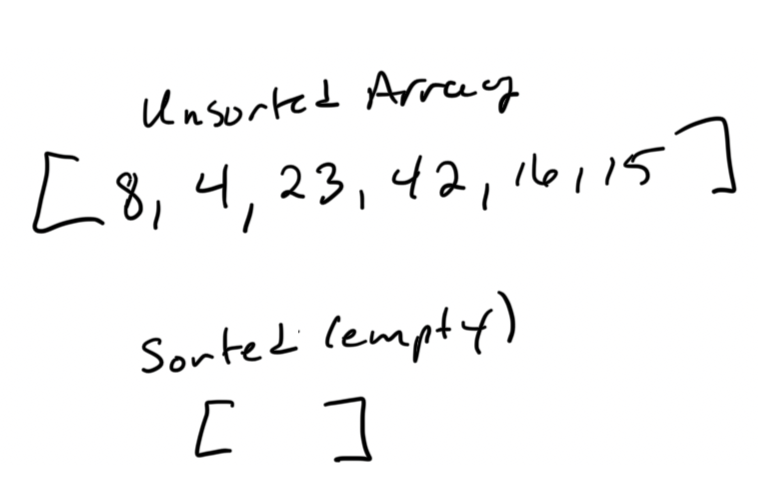 Unsorted Array
[8, 4, 23, 42, 16, 15]
Sorted (empty)
[ ]